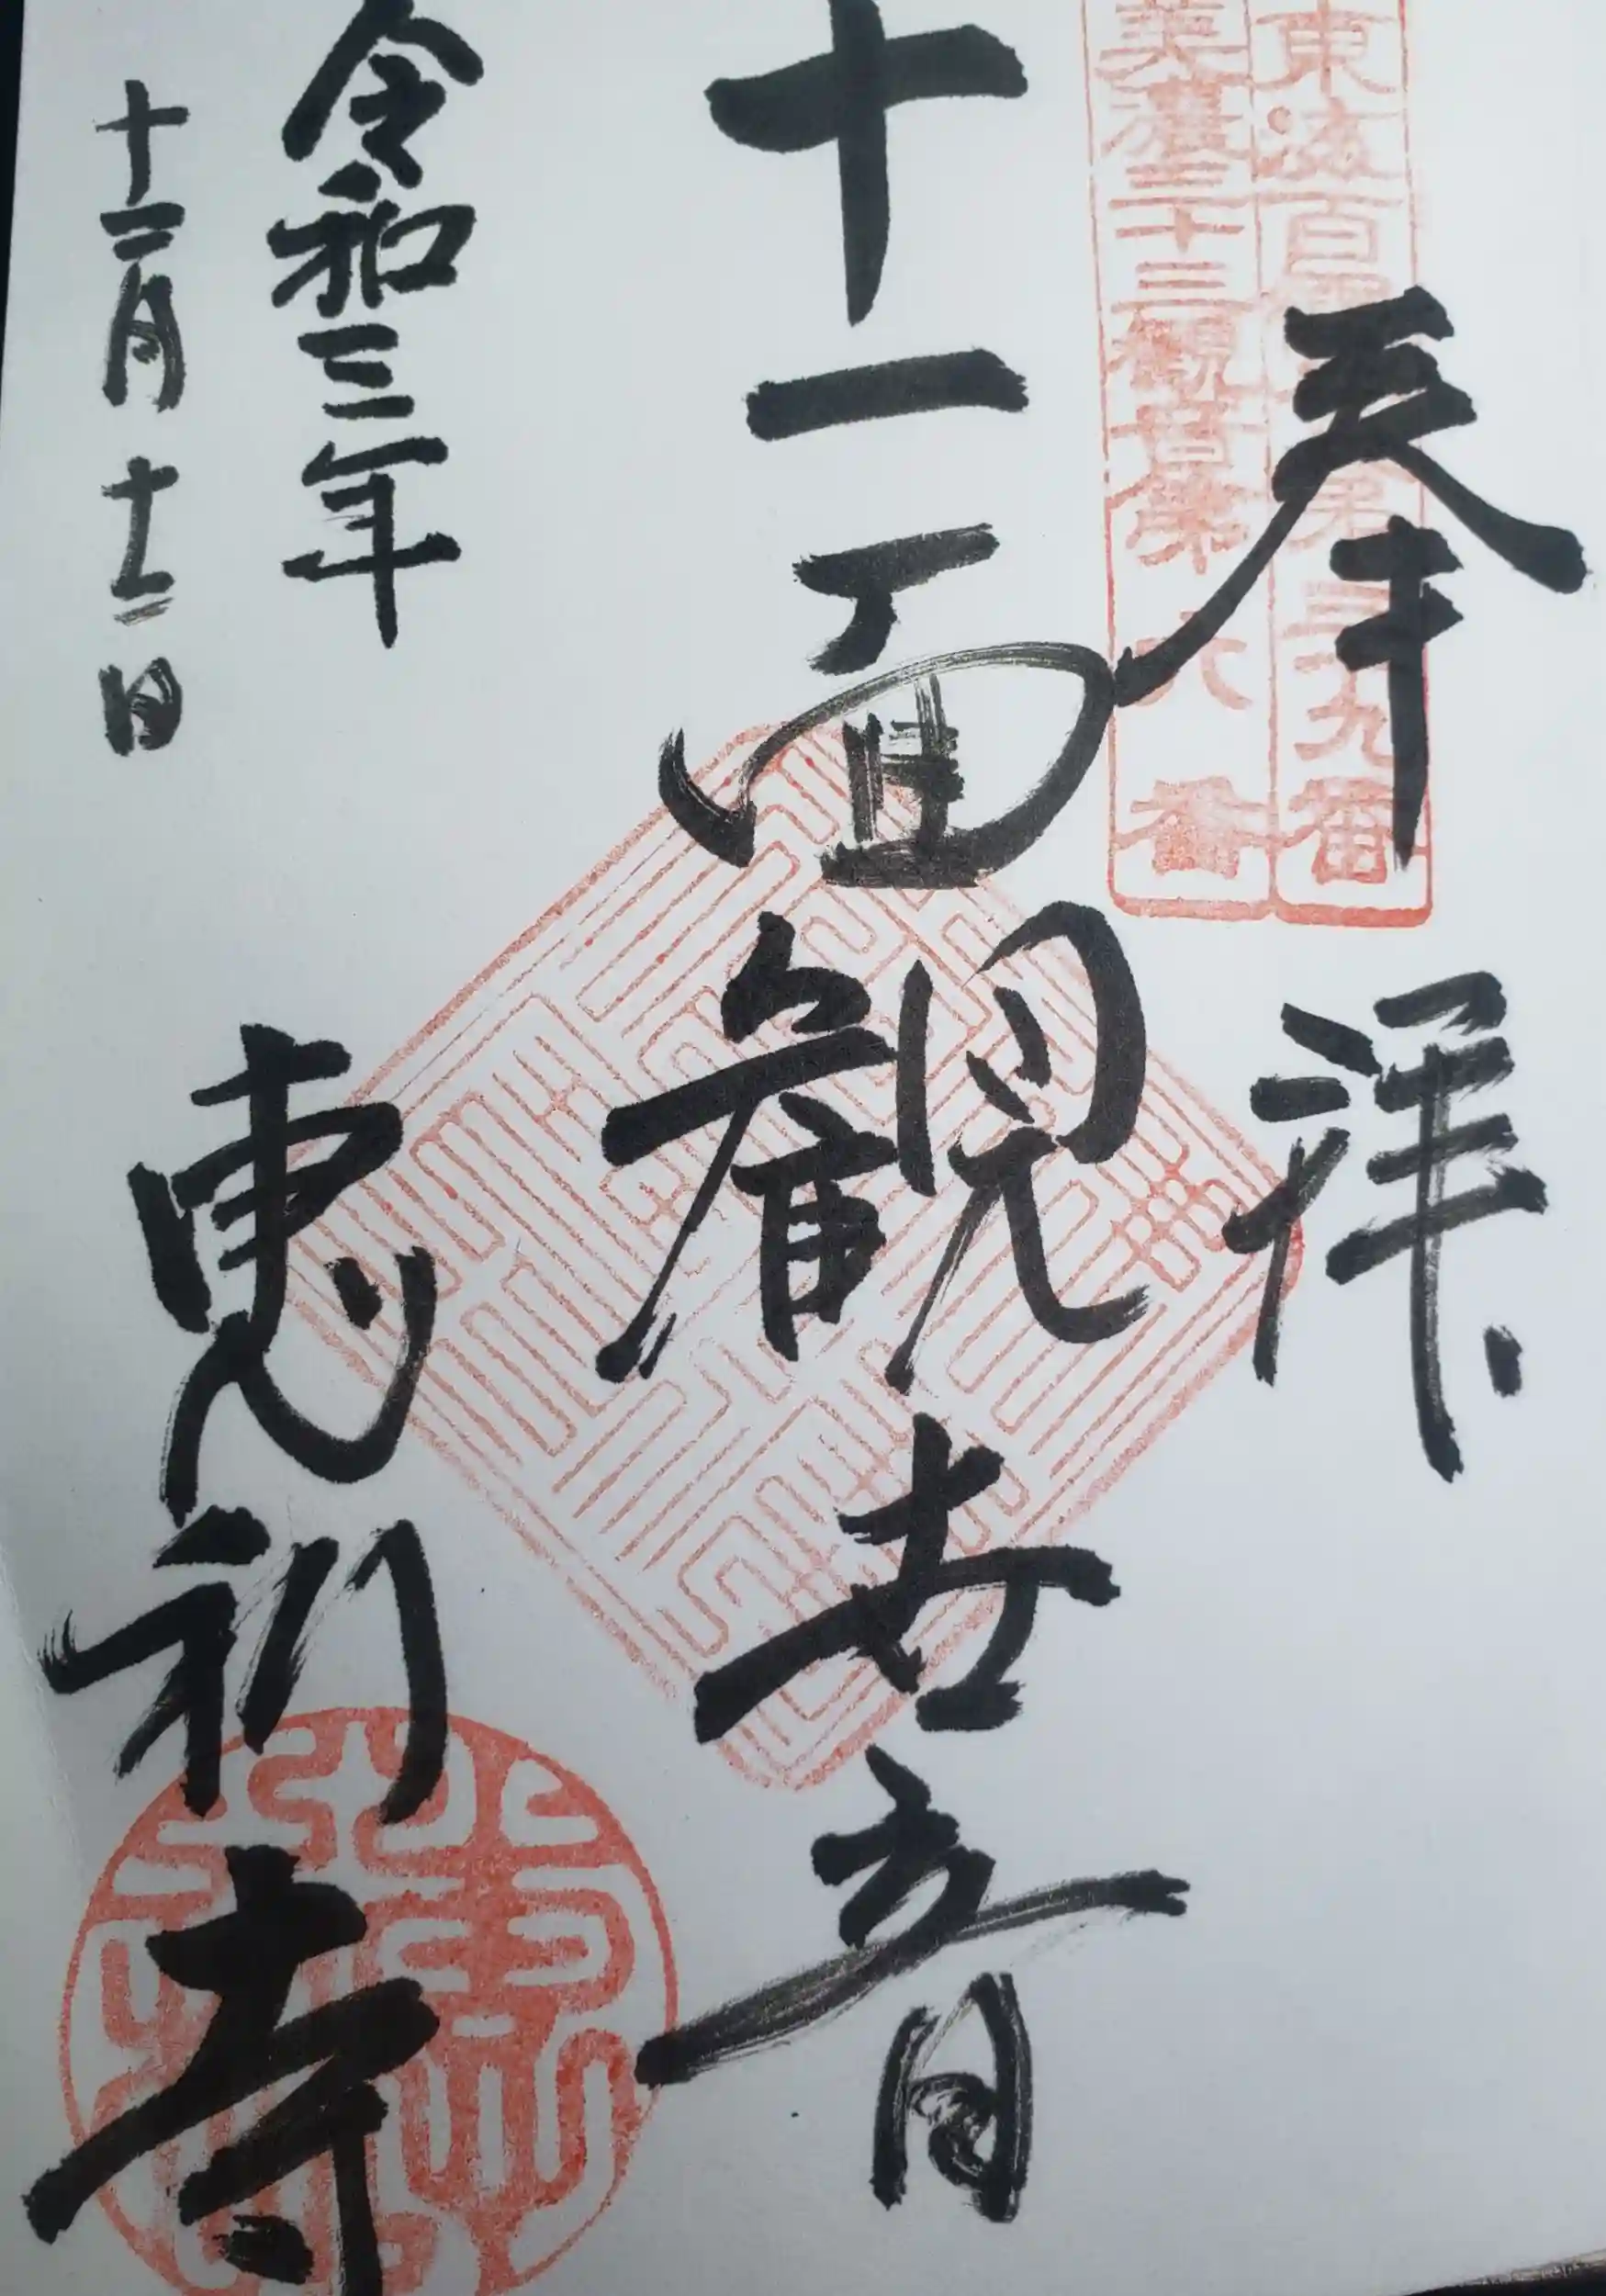 東海百観音第三十九番
美濃三十三観音第六番
奉拝
十一面観世音
令和三年
十二月十二日
恵利寺